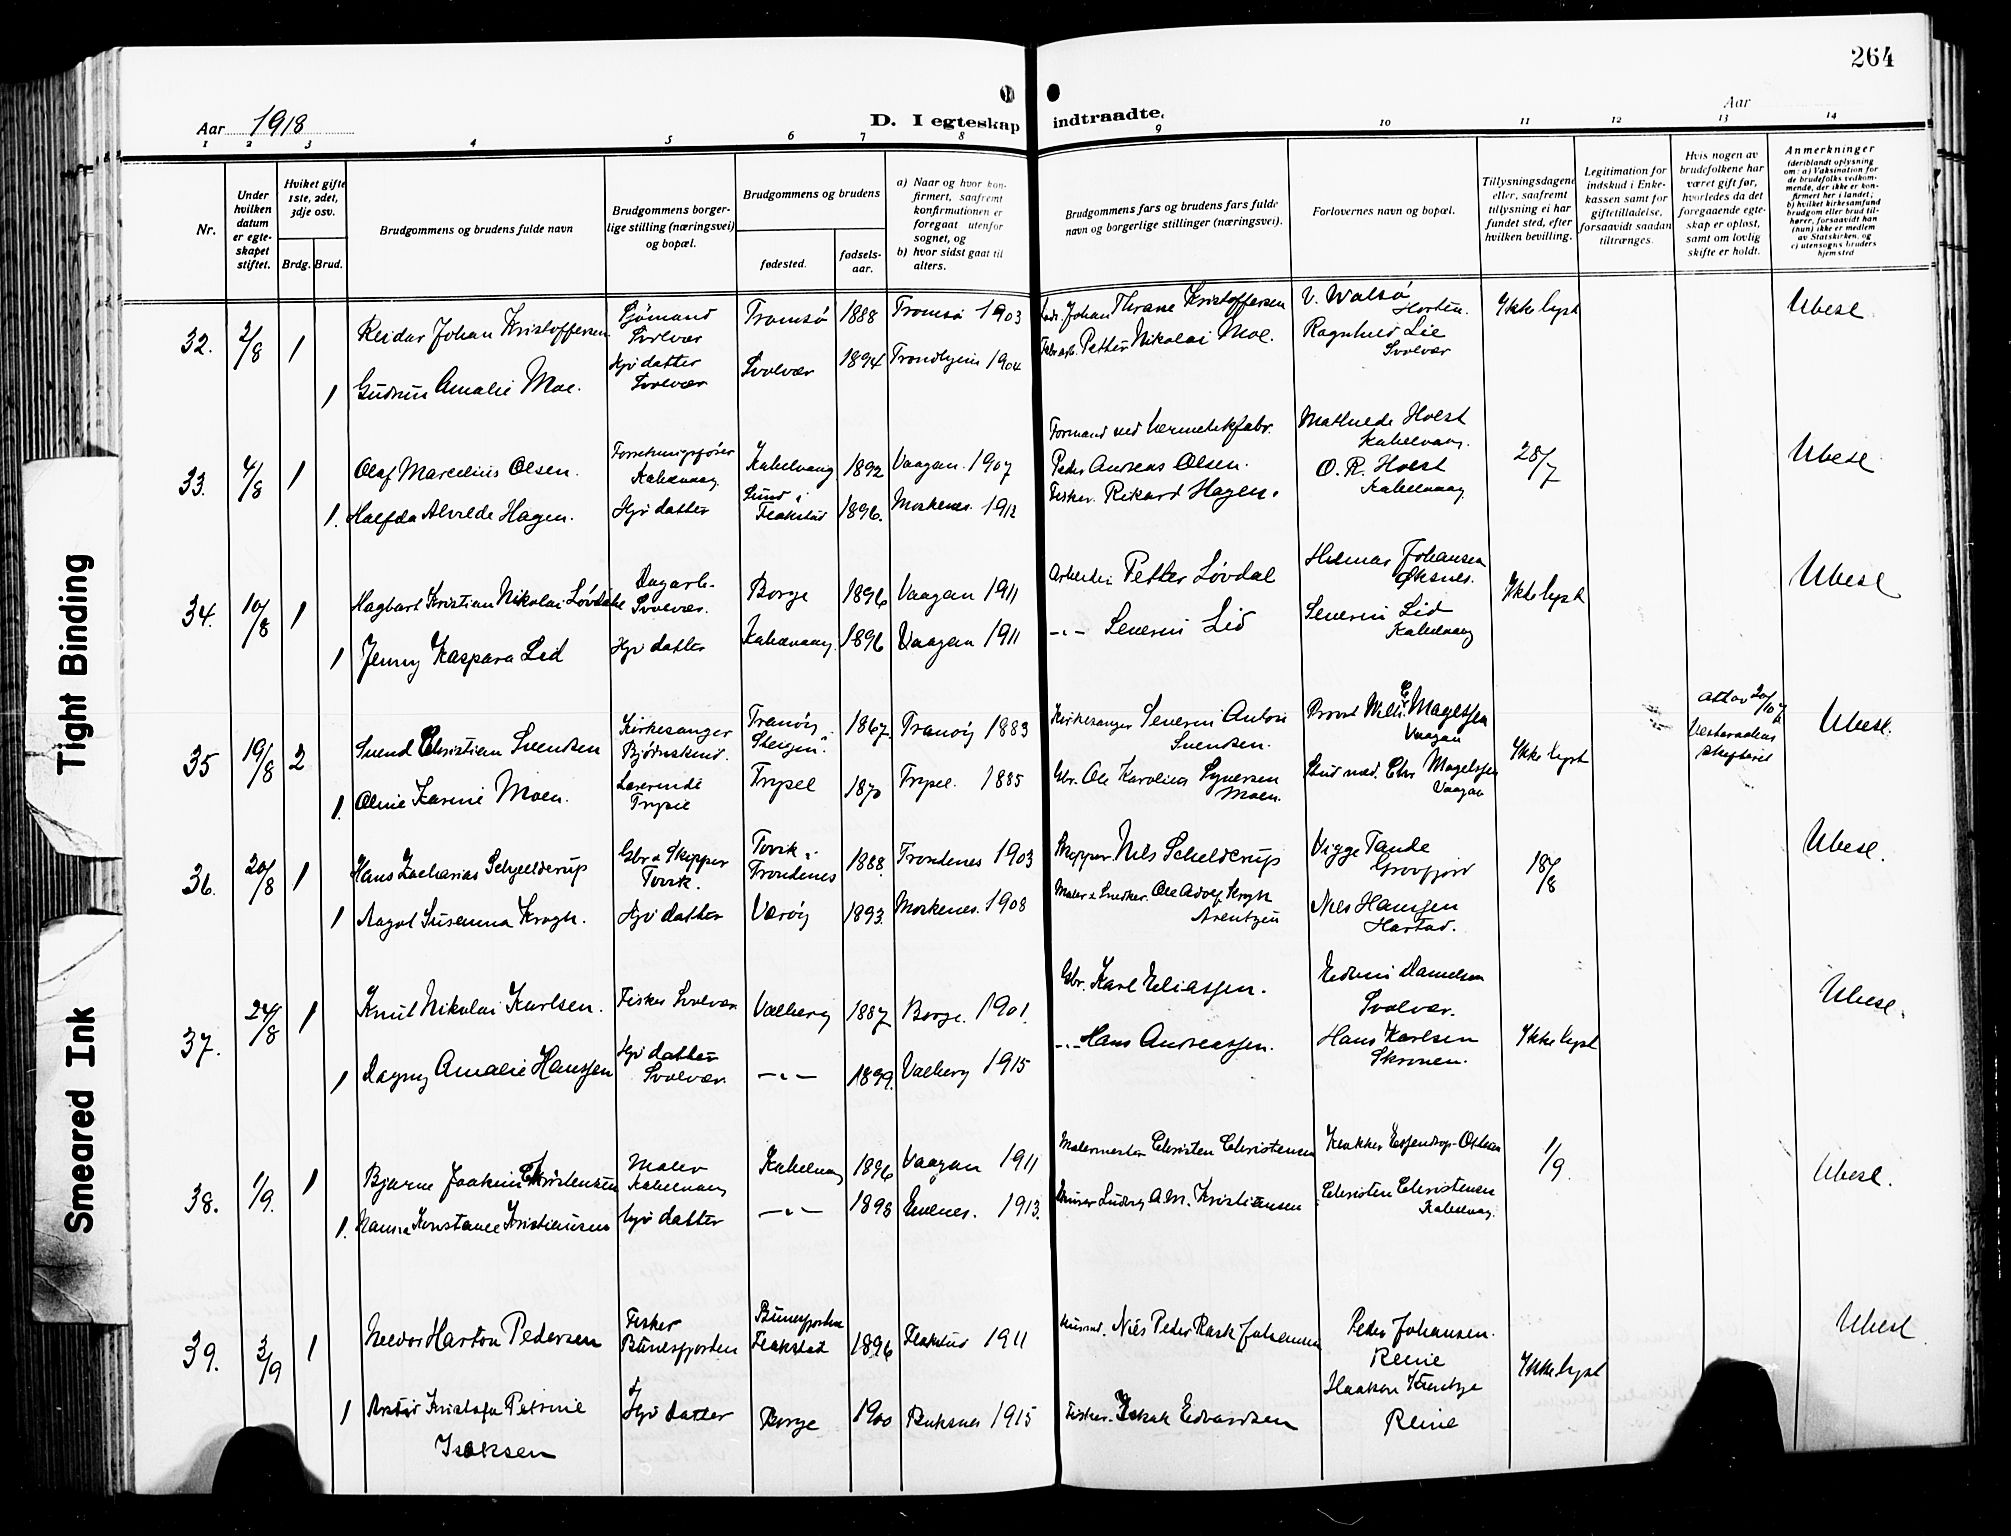 264
Aar 1918
D. I egteskap indtraadte.
Aar
1 2 3 4 5 6 7 8 9 10 11 12 13 14
Nr.
Under hvilken datum er egteskapet stiftet.
Hviket gifte 1ste, 2det, 3dje osv.
Brdg. Brud.
Brudgommens og brudens fulde navn
Brudgommens borgerlige stilling (næringsvei) og bopæl.
Brudgommens og brudens
fødested.
fødselsaar.
a) Naar og hvor konfirmert, saafremt konfirmationen er foregaat utenfor sognet, og
b) hvor sidst gaat til alters.
Brudgommens fars og brudens fars fulde navn og borgerlige stillinger (næringsvei).
Forlovernes navn og bopæl.
Tillysningsdagene eller, saafremt tillysning ei har fundet sted, efter hvilken bevilling.
Legitimation for indskud i Enkekassen samt for giftetilladelse, forsaavidt saadan tiltrænges.
Hvis nogen av brudefolkene har været gift før, hvorledes da det foregaaende egteskap er opløst, samt om lovlig skifte er holdt.
Anmerkninger
(deriblandt oplysning om: a) Vaksination for de brudefolks vedkommende, der ikke er konfirmert her i landet; b) hvilket kirkesamfund brudgom eller brud tilhører, forsaavidt han (hun) ikke er medlem av Statskirken, og c) utensogns bruders hjemsted
32. 2/8 1 Reidar Johan Kristoffersen Sjømand Svolvær Tromsø 1888 Tromsø 1903 Johan Thrane Kristoffersen V. Walsø Horten. Ikke lyst Ubesl
1 Gudrun Amalie Moe. Hjv datter Svolvær Svolvær 1894 Trondhjem 1904 Fabr.arb. Petter Nikolai Moe. Ragnhild Lie Svolvær
33. 4/8 1 Olaf Marcelius Olsen. Forretningsfører Kabelvaag Kabelvaag 1892 Vaagan. 1907 Formand ved hermetikfabr. Peder Andreas Olsen. Mathilde Holst Kabelvaag. 28/7 Ubesl
1. Halfda Alvilde Hagen. Hjv datter Sund i Flakstad 1896. Moskenes. 1912 Fisker. Rikard Hagen. O. R. Holst Kabelvaag
34. 10/8 1 Hagbart Kristian Nikolai Løvdahl Dagarb. Svolvær. Borge 1896 Vaagan 1911 Arbeider Petter Løvdal Hilmar Johansen Øksnes. Ikke lyst Ubesl
1 Jenny Kaspara Lid Hjv datter Kabelvaag. 1896 Vaagan 1911 -"- Severin Lid Severin Lid Kabelvaag
35 19/8 2 Svend Christian Svendsen Kirkesanger Bjørnskind. Tranøy, Steigen. 1867. Tranøy 1883 Kirkesanger Severin Anton Svendsen. Provst Wilh. Magelssen Vaagan Ikke lyst Vesteraalens skifteret Ubesl.
1. Oline Karine Moen. Lærerinde Trysil Trysil 1870 Trysil. 1885 Gbr. Ole Karolius Syversen Moen. Stud. med. Chr Magelssen Vaagan
36. 20/8 1 Hans Zacharias Schjelderup Gbr & Skipper Tovik. Tovik i Trondenes 1888. Trondenes 1903 Skipper Nils Schelderup Vigge Tande Grovfjord 18/8 Ubesl.
1 Aagot Susanna Krogh. Hjv datter Værøy 1893. Moskenes. 1908 Maler & Snedker. Ole Adolf Krogh Arentzen Nils Hansen Harstad.
37. 24/8 1 Knut Nikolai Karlsen. Fisker Svolvær Valberg 1887 Borge. 1901. Gbr. Karl Eliassen. Edvin Danielsen Svolvær. Ikke lyst Ubesl.
1 Dagny Amalie Hanssen Hjv datter Svolvær. -"- 1899. Valberg 1915 -"- Hans Andreassen. Hans Karlsen Skroven.
38. 1/9. 1 Bjarne Joakim Christensen Maler Kabelvaag Kabelvaag 1896 Vaagan 1911 Malermester Christen Christensen 1/9. Ubesl.
1. Hanna Konstance Kristiansen Hjv datter -"- 1898 Evenes. 1913. Murer Ludvig A.M. Kristiansen Christen Christensen Kabelvaag.
39. 3/9 1 Harton Pedersen Fisker Bunesfjorden Bunesfjorden Flakstad 1896 Flakstad 1911 Nils Peder Rask Johansen Peder Johansen. Reine Ikke lyst Ubesl
1 Kristofa Petrine Isaksen Hjv datter Borge 1900 Buksnes 1915 Fisker. Isak Edvardsen Haakon Reine
Tight Binding
Smeared Ink